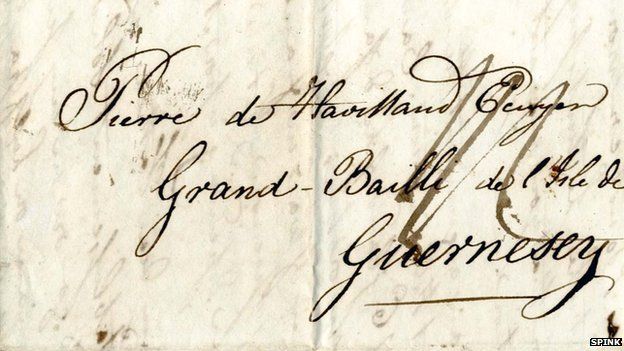 Pierre de Havilland Ecuyer
Grand-Bailli de l'Isle de
Guernesey
SPINK